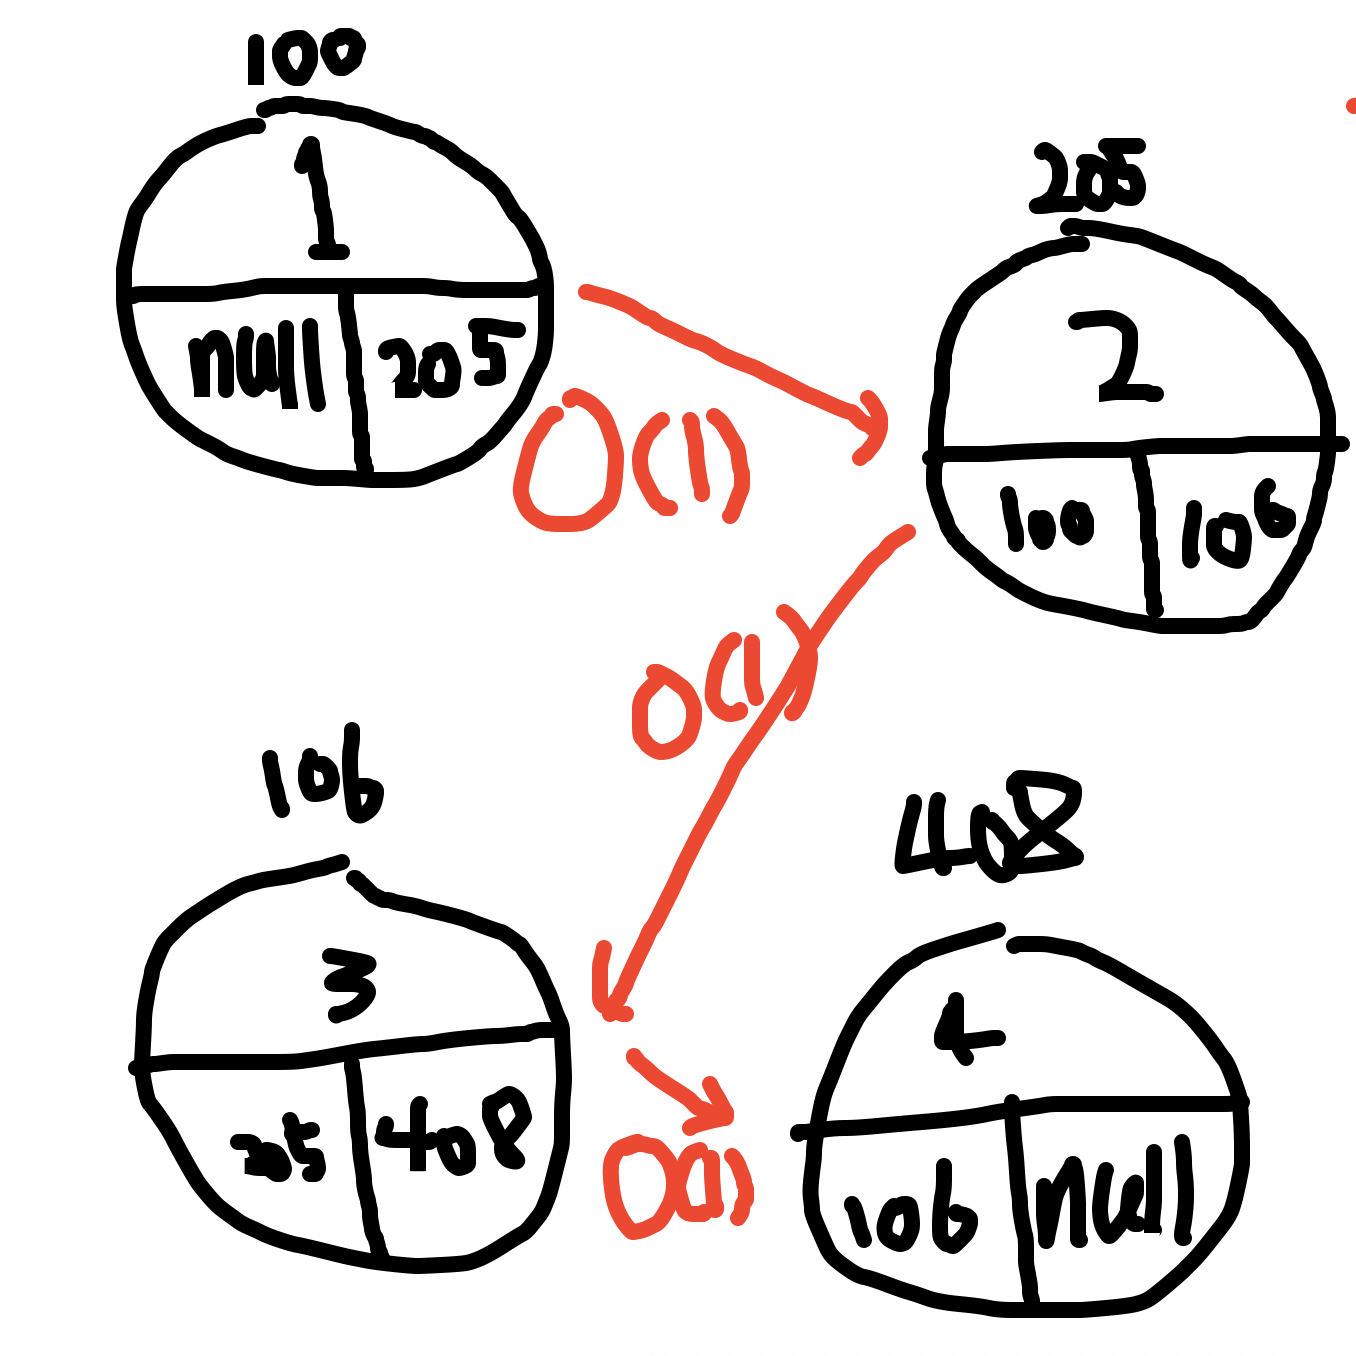 100
1
null 205
O(1)
205
2
100 106
O(1)
106
3
205 408
O(1)
408
4
106 null